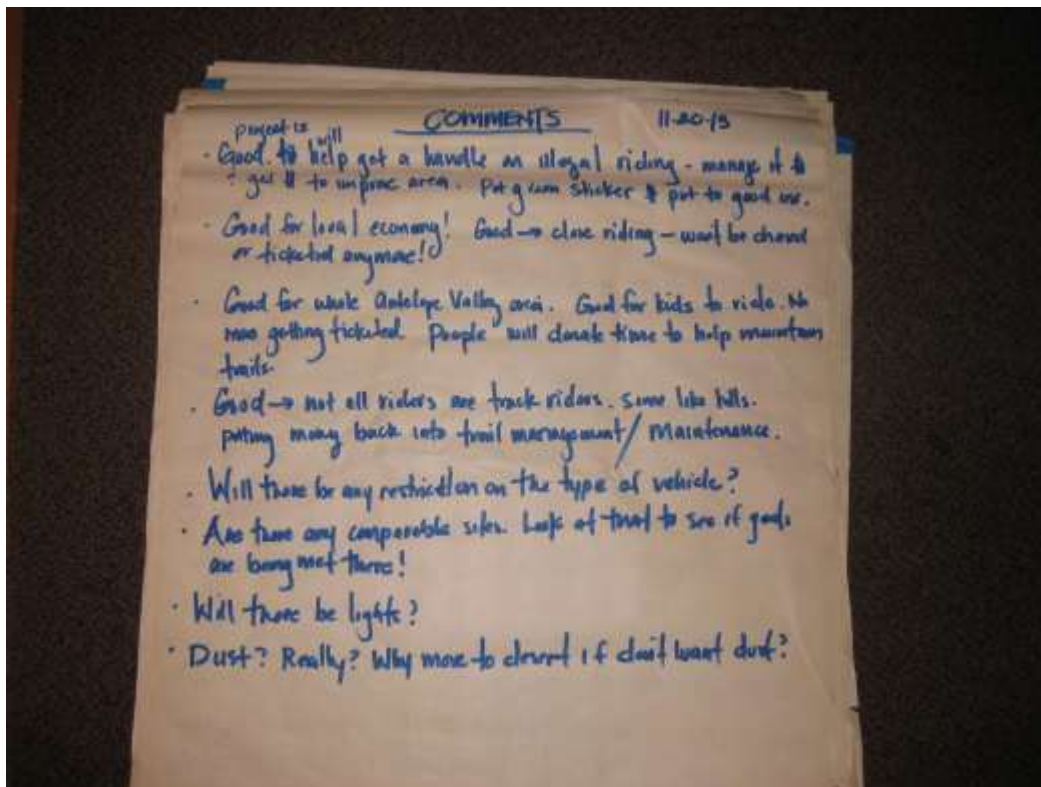 COMMENTS 11-20-13
project is will
· Good. to help get a handle on illegal riding - manage it to
get $ to improve area. Put green sticker $ put to good use.
· Good for local economy! Good → close riding - won't be chased
or ticketed anymore!
· Good for whole Antelope Valley area. Good for kids to ride. No
more getting ticketed. People will donate time to help maintain
trails.
· Good → not all riders are track riders. Some like hills.
putting money back into trail management/maintenance.
· Will there be any restriction on the type of vehicle?
· Are there any comparable sites. Look at that to see if goals
are being met there!
· Will there be lights?
· Dust? Really? Why move to desert if don't want dust?